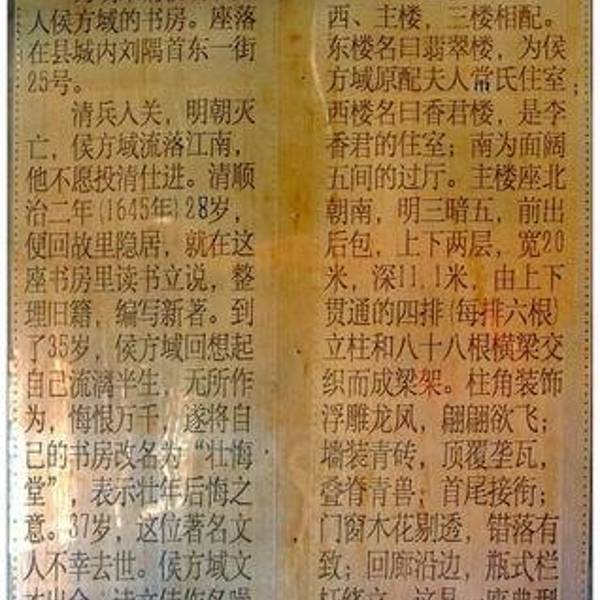 人侯方域的书房。座落
在县城内刘隅首东一街
25号。
清兵入关，明朝灭
亡，侯方域流落江南，
他不愿投清仕进。清顺
治二年(1645年)28岁，
便回故里隐居，就在这
座书房里读书立说，整
理旧籍，编写新著。到
了35岁，侯方域回想起
自己流漓半生，无所作
为，悔恨万千，遂将自
己的书房改名为“壮悔
堂”，表示壮年后悔之
意。37岁，这位著名文
人不幸去世。侯方域文
西、主楼，三楼相配。
东楼名曰翡翠楼，为侯
方域原配夫人常氏住室；
西楼名曰香君楼，是李
香君的住室；南为面阔
五间的过厅。主楼座北
朝南，明三暗五，前出
后包，上下两层，宽20
米，深11.1米，由上下
贯通的四排(每排六根)
立柱和八十八根横梁交
织而成梁架。柱角装饰
浮雕龙凤，翩翩欲飞；
墙装青砖，顶覆垄瓦，
叠脊青兽；首尾接衔；
门窗木花剔透，错落有
致；回廊沿边，瓶式栏